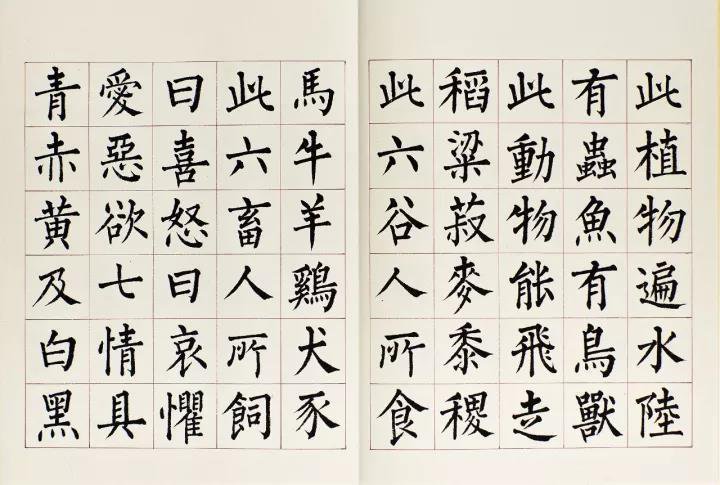 此植物遍水陸
有蟲魚有鳥獸
此動物能飛走
稻粱菽麥黍稷
此六谷人所食
馬牛羊鷄犬豕
此六畜人所飼
曰喜怒曰哀懼
愛惡欲七情具
青赤黃及白黑